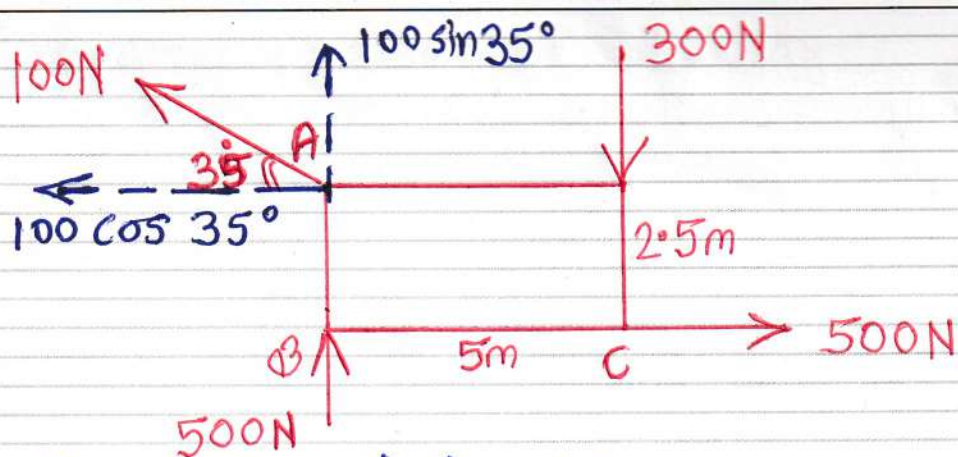 100 sin 35°
300N
100N
A
35°
100 cos 35°
2.5m
B
5m
C
500N
500N